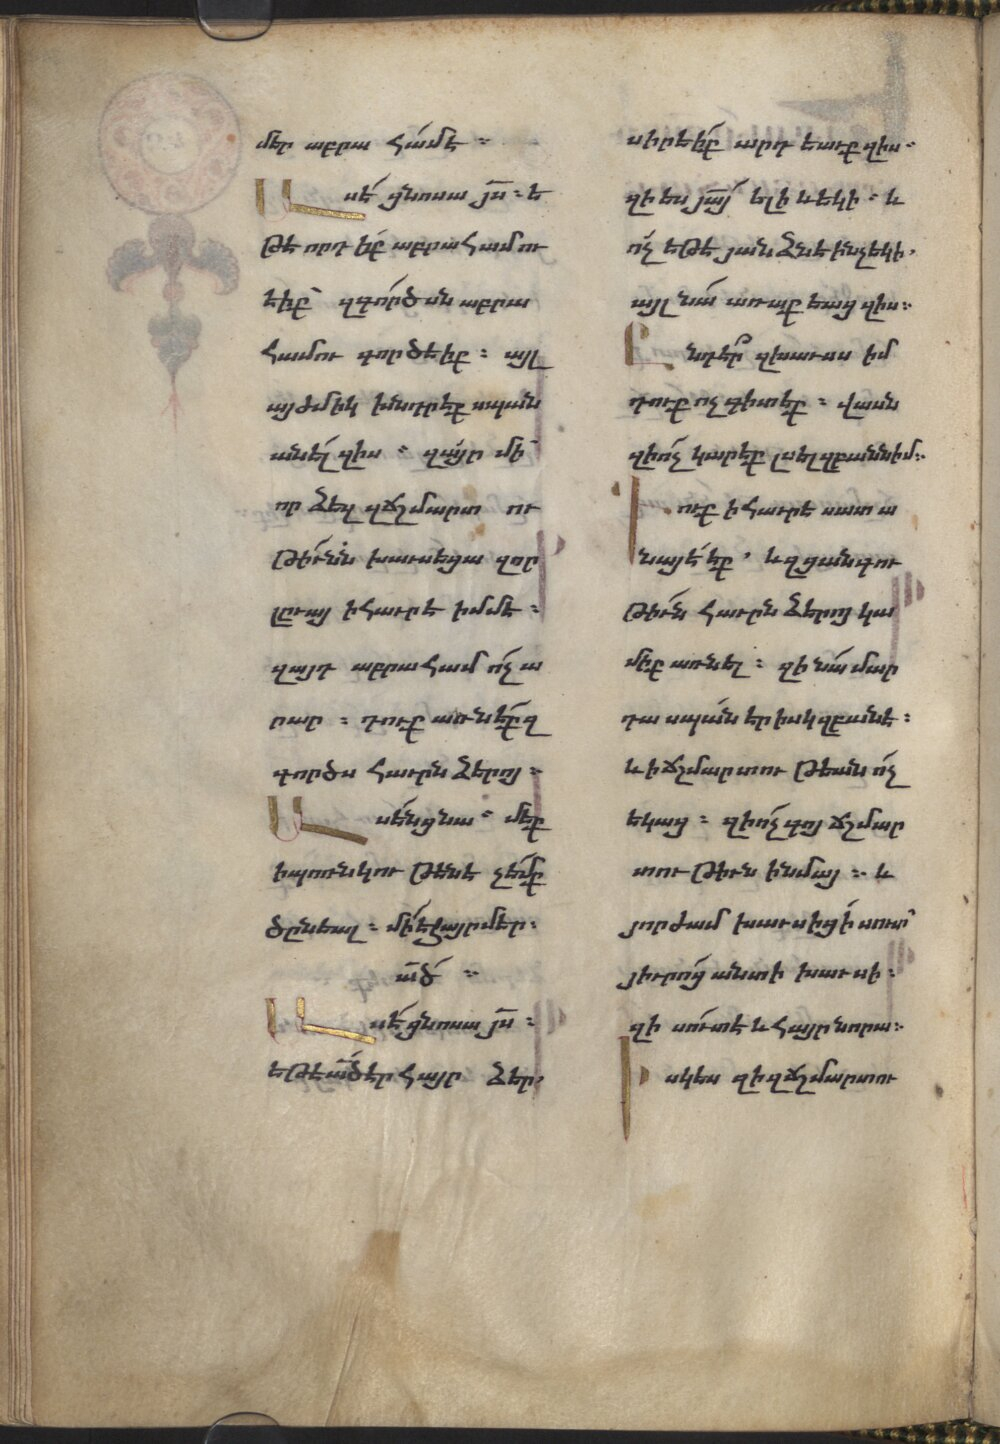 մեր աբրա համէ ։
Ասէ ցնոսա յս ։ ե
թէ որդ իք աբրահամ ու
եիք՝ զգործ սն աբրա
համու գործէիք ։ այլ
այժմ իկ խնդրէք սպան
անել զիս ։ զայր մի՝
որ ձեզ զճշմարտ ու
թիւնն խաւսեցա զոր
լըւայ ի հաւրէ իմմէ ։
զայդ աբրահամ ոչ ա
րար ։ դուք առնէք զ
գործս հաւրն ձերոյ ։
Ասեն ցնա ։ մեք
ի պոռնկու թենէ չեմք
ծընեալ ։ մի է հայր մեր ։
ած ։
Ասէ ցնոսա յս ։
եթե ած էր հայր ձեր,
սիրէիք արդ եաւք զիս ։
զի ես յայ ելի և եկի ։ և
ոչ եթէ յանձնէ ինչ եկի,
այլ նա առաք եաց զիս ։
Ընդէր զխաւսս իմ
դուք ոչ գիտէք ։ վասն
զի ոչ կարէք լսել զբանն իմ ։
Դուք ի հաւրէ սատա
նայէ էք, և զցանգու
թիւն հաւրն ձերոյ կա
միք առնել ։ զի նա մար
դա սպան էր իսկզբանէ ։
և ի ճշմարտու թեան ոչ
եկաց ։ զի ոչ գոյ ճշմար
տու թիւն ի նմայ ։ և
յորժամ խաւսիցի սուտ՝
յիւրոց անտի խաւսի ։
զի սուտ է և հայր նորա ։
Իսկ ես զի զճշմարտու